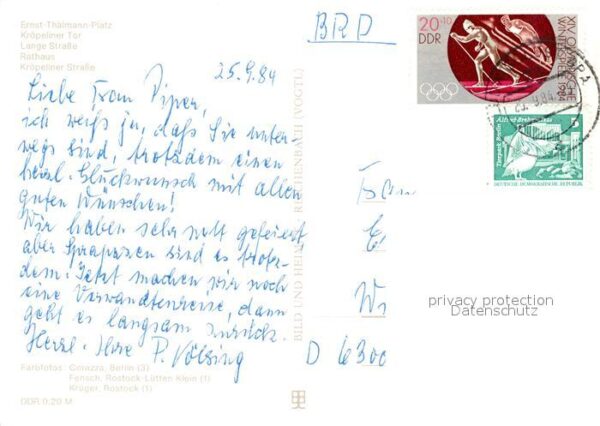 Ernst-Thälmann-Platz
Kröpeliner Tor
Lange Straße
Rathaus
Kröpeliner Straße
BRD
25.9.84
Liebe Frau Piper,
ich weiß ja, daß Sie unter-
wegs sind, trotzdem einen
herzl. Glückwunsch mit allen
guten Wünschen!
Wir haben sehr nett gefeiert,
aber Strapazen sind es trotz-
dem. Jetzt machen wir noch
eine Verwandtenreise, dann
geht es langsam zurück.
Herzl. Ihre P. Völsing
Farbfotos: Corazza, Berlin (3)
Fensch, Rostock-Lütten Klein (1)
Krüger, Rostock (1)
DDR 0,20 M
BILD UND HEIM REICHENBACH (VOGTL)
20+10
DDR
XIV. OLYMPISCHE
WINTERSPIELE
1984
5
Tierpark Berlin
DEUTSCHE DEMOKRATISCHE REPUBLIK
Frau
W
D 6300
privacy protection
Datenschutz